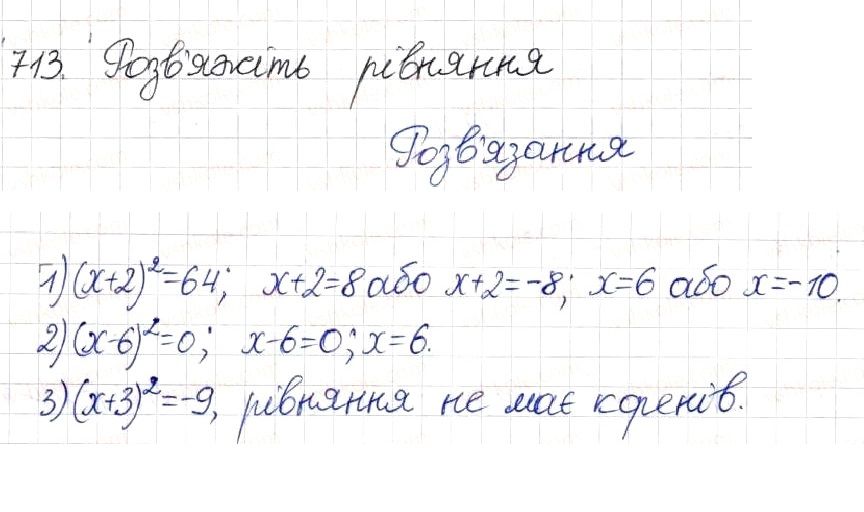 713. Розв'яжіть рівняння
Розв'язання
1) (x+2)²=64; x+2=8 або x+2=-8; x=6 або x=-10.
2) (x-6)²=0; x-6=0; x=6.
3) (x+3)²=-9, рівняння не має коренів.